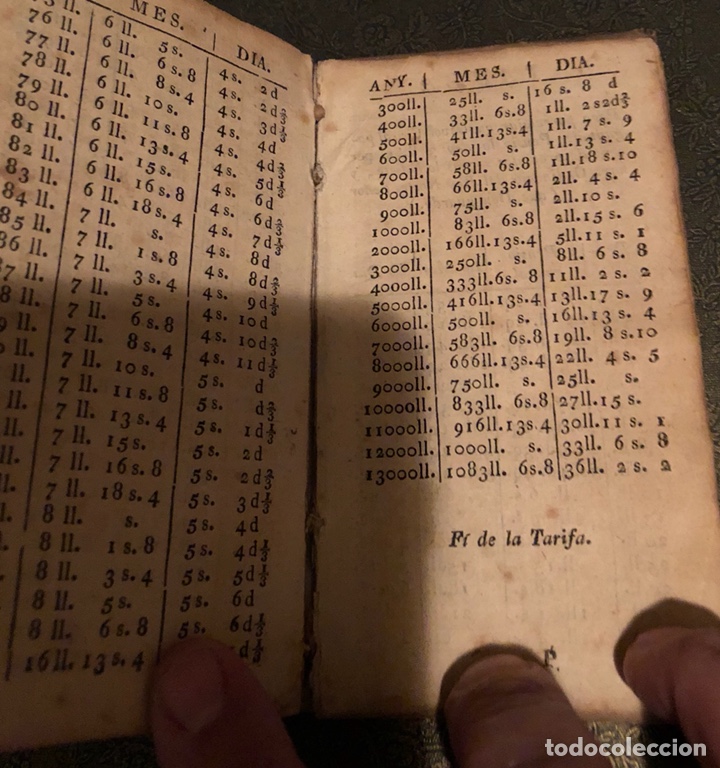 MES. DIA.
75 ll. 6 ll. 5 s. 4 s. 2d
76 ll. 6 ll. 6 s.8 4 s. 2d⅔
77 ll. 6 ll. 8 s.4 4 s. 3d⅓
78 ll. 6 ll. 10 s. 4 s. 4d
79 ll. 6 ll. 11 s.8 4 s. 4d⅔
80 ll. 6 ll. 13 s.4 4 s. 5d⅓
81 ll. 6 ll. 15 s. 4 s. 6d
82 ll. 6 ll. 16 s.8 4 s. 6d⅔
83 ll. 6 ll. 18 s.4 4 s. 7d⅓
84 ll. 7 ll. s. 4 s. 8d
85 ll. 7 ll. 1 s.8 4 s. 8d⅔
86 ll. 7 ll. 3 s.4 4 s. 9d⅓
7 ll. 7 ll. 5 s. 4 s. 10d
8 ll. 7 ll. 6 s.8 4 s. 10d⅔
9 ll. 7 ll. 8 s.4 4 s. 11d⅓
ll. 7 ll. 10 s. 5 s. d
ll. 7 ll. 11 s.8 5 s. d⅔
ll. 7 ll. 13 s.4 5 s. 1d⅓
ll. 7 ll. 15 s. 5 s. 2d
ll. 7 ll. 16 s.8 5 s. 2d⅔
7 ll. 18 s.4 5 s. 3d⅓
8 ll. s. 5 s. 4d
8 ll. 1 s.8 5 s. 4d⅔
8 ll. 3 s.4 5 s. 5d⅓
8 ll. 5 s. 5 s. 6d
8 ll. 6 s.8 5 s. 6d⅔
16ll. 13 s.4
ANY. MES. DIA.
300ll. 25ll. s. 16 s. 8 d
400ll. 33ll. 6s.8 1ll. 2 s2d⅔
500ll. 41ll.13s.4 1ll. 7 s. 9
600ll. 50ll. s. 1ll.13 s. 4
700ll. 58ll. 6s.8 1ll.18 s.10
800ll. 66ll.13s.4 2ll. 4 s. 4
900ll. 75ll. s. 2ll.10 s.
1000ll. 83ll. 6s.8 2ll.15 s. 6
2000ll. 166ll.13s.4 5ll.11 s. 1
3000ll. 250ll. s. 8ll. 6 s. 8
4000ll. 333ll.6s. 8 11ll. 2 s. 2
5000ll. 416ll.13s.4 13ll.17 s. 9
6000ll. 500ll. s. 16ll.13 s. 4
7000ll. 583ll. 6s.8 19ll. 8 s.10
8000ll. 666ll.13s.4 22ll. 4 s. 5
9000ll. 750ll. s. 25ll. s.
10000ll. 833ll. 6s.8 27ll.15 s.
11000ll. 916ll.13s4 30ll.11 s. 1
12000ll. 1000ll. s. 33ll. 6 s. 8
13000ll. 1083ll. 6s.8 36ll. 2 s. 2
Fí de la Tarifa.
todocoleccion.com